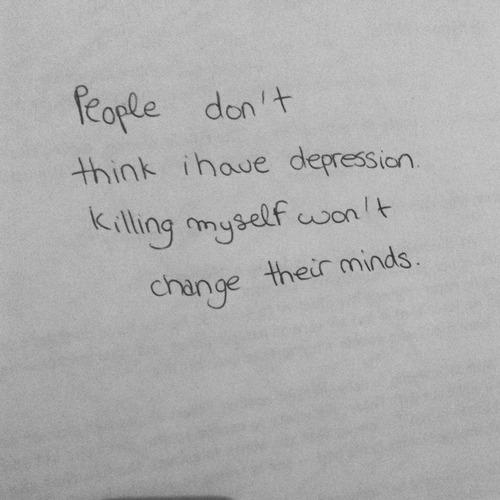 People don't
think i have depression.
Killing myself won't
change their minds.